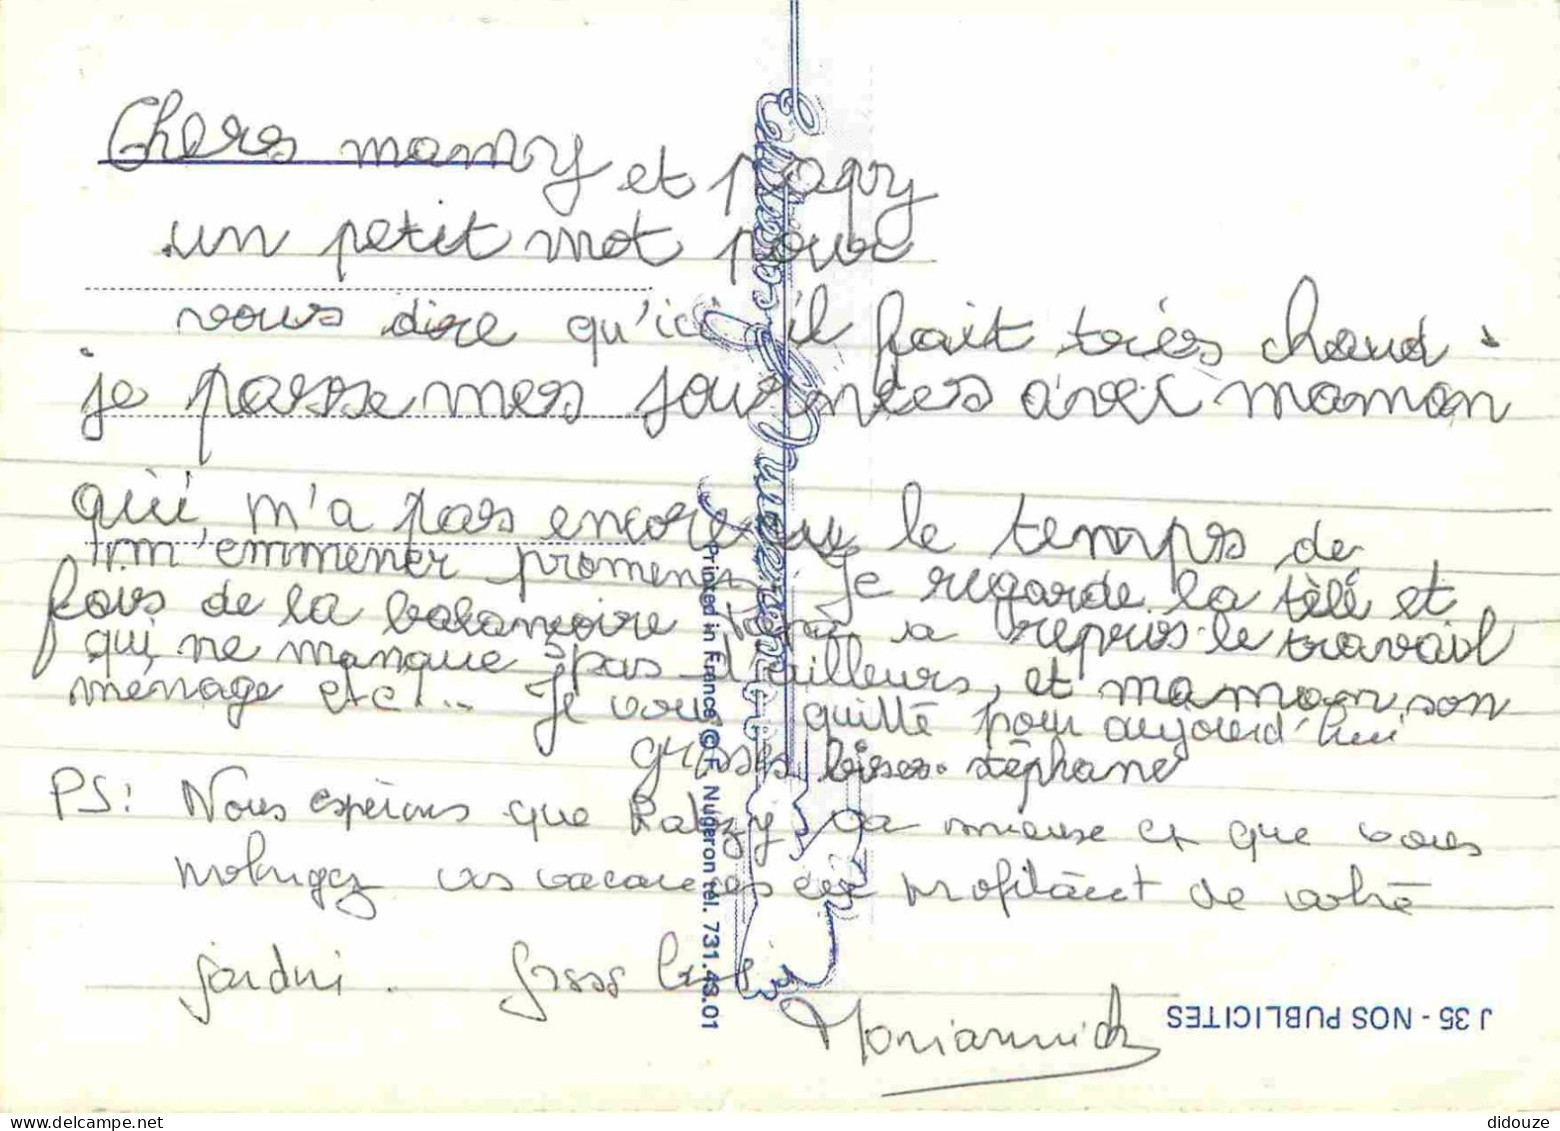 Chers mamy et papy
un petit mot pour
vous dire qu'ici il fait très chaud.
je passe mes journées avec maman
qui m'a pas encore eu le temps de
m'emmener promener. Je regarde la télé et
fais de la balançoire Papa a repris le travail
qui ne manque pas d'ailleurs, et maman son
ménage etc... Je vous quitte pour aujourd'hui
grosses bises. stéphane
PS: Nous espérons que va mieux et que vous
prolongez vos vacances en profitant de votre
jardin. Gross bises
J 35 - NOS PUBLICITES
Printed in France © F. Nugeron tél. 731.43.01
didouze